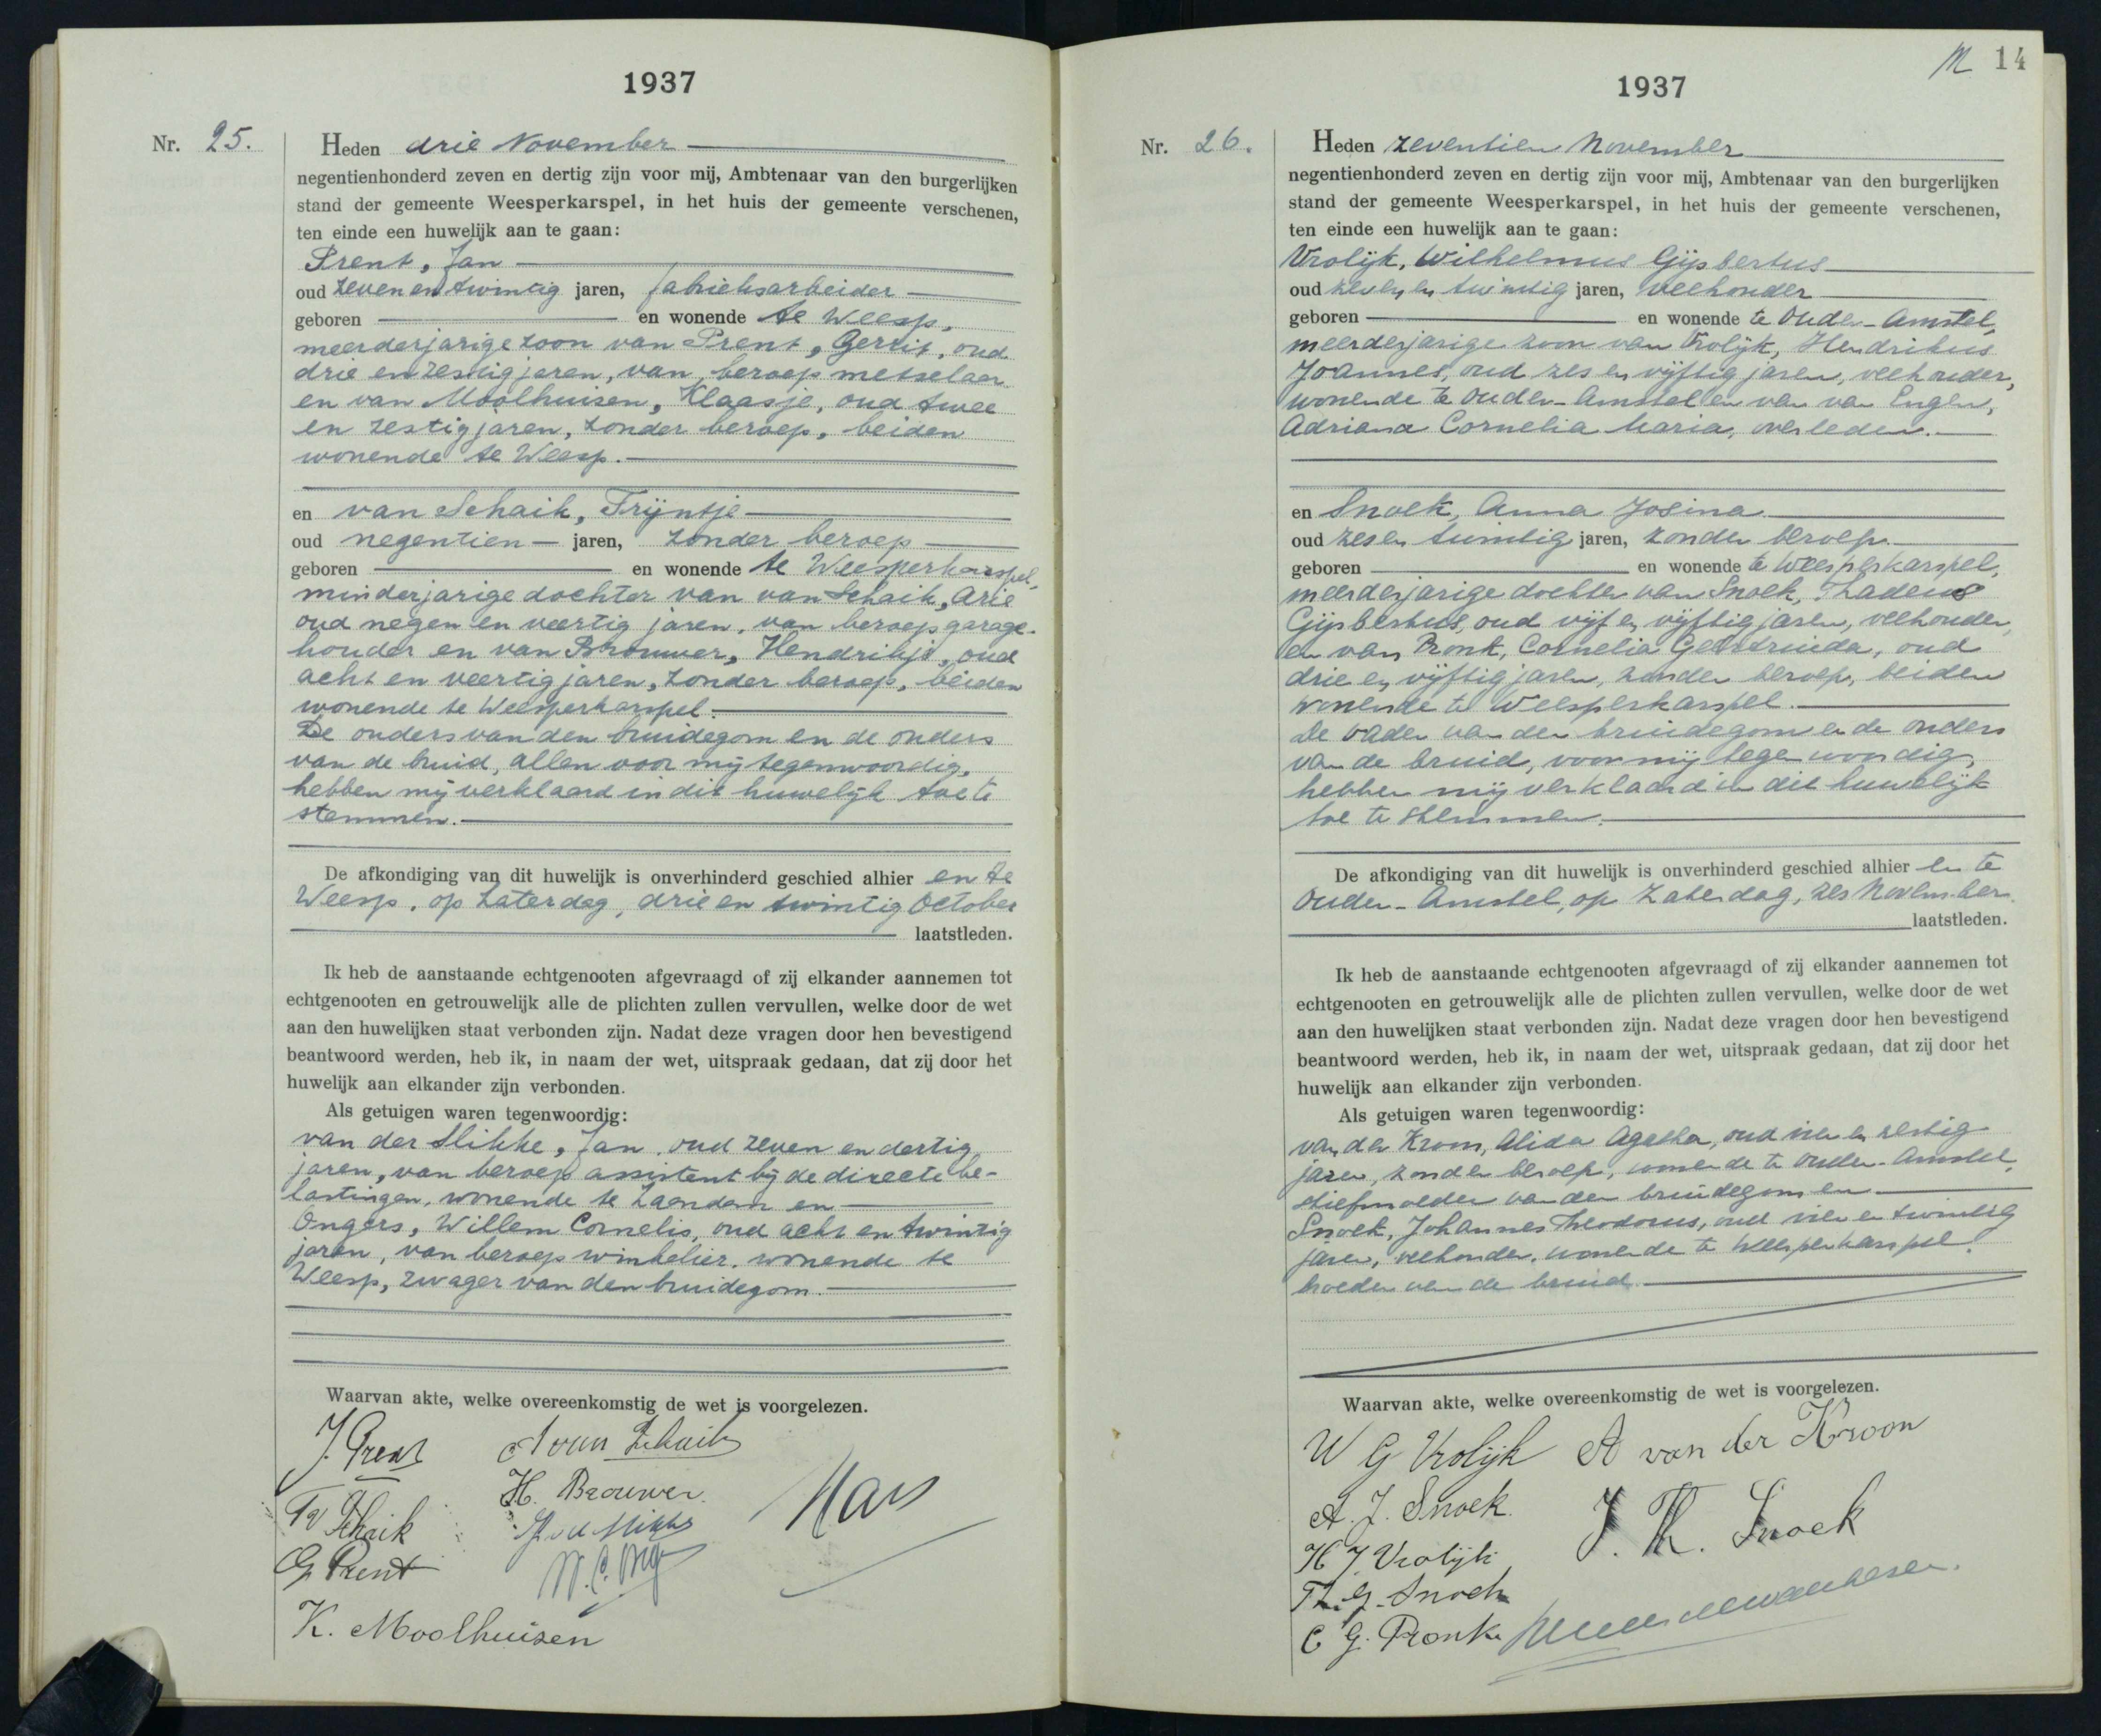 1937
Nr. 25.
Heden drie November
negentienhonderd zeven en dertig zijn voor mij, Ambtenaar van den burgerlijken
stand der gemeente Weesperkarspel, in het huis der gemeente verschenen,
ten einde een huwelijk aan te gaan:
Prent, Jan
oud zeven en twintig jaren, fabrieksarbeider
geboren en wonende te Weesp,
meerderjarige zoon van Prent, Gerrit, oud
drie en zestig jaren, van beroep metselaar
en van Moolhuisen, Klaasje, oud twee
en zestig jaren, zonder beroep, beiden
wonende te Weesp.
en van Schaik, Trijntje
oud negentien jaren, zonder beroep
geboren en wonende te Weesperkarspel,
minderjarige dochter van van Schaik, Arie
oud negen en veertig jaren, van beroep garage-
houder en van Brouwer, Hendrikje, oud
acht en veertig jaren, zonder beroep, beiden
wonende te Weesperkarspel.
De ouders van den bruidegom en de ouders
van de bruid, allen voor mij tegenwoordig,
hebben mij verklaard in dit huwelijk toe te
stemmen.
De afkondiging van dit huwelijk is onverhinderd geschied alhier en te
Weesp, op Zaterdag, drie en twintig October
laatstleden.
Ik heb de aanstaande echtgenooten afgevraagd of zij elkander aannemen tot
echtgenooten en getrouwelijk alle de plichten zullen vervullen, welke door de wet
aan den huwelijken staat verbonden zijn. Nadat deze vragen door hen bevestigend
beantwoord werden, heb ik, in naam der wet, uitspraak gedaan, dat zij door het
huwelijk aan elkander zijn verbonden.
Als getuigen waren tegenwoordig:
van der Slikke, Jan, oud zeven en dertig
jaren, van beroep assistent bij de directe be-
lastingen, wonende te Zaandam en
Ongers, Willem Cornelis, oud acht en twintig
jaren, van beroep winkelier, wonende te
Weesp, zwager van den bruidegom.
Waarvan akte, welke overeenkomstig de wet is voorgelezen.
J. Prent A van Schaik
H. Brouwer
T v Schaik
G Prent
K. Moolhuisen
M 14
1937
Nr. 26.
Heden zeventien November
negentienhonderd zeven en dertig zijn voor mij, Ambtenaar van den burgerlijken
stand der gemeente Weesperkarspel, in het huis der gemeente verschenen,
ten einde een huwelijk aan te gaan:
Vrolijk, Wilhelmus Gijsbertus
oud zeven en twintig jaren, veehouder
geboren en wonende te Ouder-Amstel,
meerderjarige zoon van Vrolijk, Hendrikus
Joannes, oud zes en vijftig jaren, veehouder,
wonende te Ouder-Amstel en van van Engelen,
Adriana Cornelia Maria, overleden.
en Snoek, Anna Josina
oud zes en twintig jaren, zonder beroep
geboren en wonende te Weesperkarspel,
meerderjarige dochter van Snoek, Thadeus
Gijsbertus, oud vijf en vijftig jaren, veehouder,
en van Pronk, Cornelia Geertruida, oud
drie en vijftig jaren, zonder beroep, beiden
wonende te Weesperkarspel.
De vader van den bruidegom en de ouders
van de bruid, voor mij tegenwoordig,
hebben mij verklaard in dit huwelijk
toe te stemmen.
De afkondiging van dit huwelijk is onverhinderd geschied alhier en te
Ouder-Amstel, op Zaterdag, zes November
laatstleden.
Ik heb de aanstaande echtgenooten afgevraagd of zij elkander aannemen tot
echtgenooten en getrouwelijk alle de plichten zullen vervullen, welke door de wet
aan den huwelijken staat verbonden zijn. Nadat deze vragen door hen bevestigend
beantwoord werden, heb ik, in naam der wet, uitspraak gedaan, dat zij door het
huwelijk aan elkander zijn verbonden.
Als getuigen waren tegenwoordig:
van der Kroon, Alida Agatha, oud vier en zestig
jaren, zonder beroep, wonende te Ouder-Amstel,
stiefmoeder van den bruidegom en
Snoek, Johannes Theodorus, oud vier en twintig
jaren, veehouder, wonende te Weesperkarspel,
broeder van de bruid.
Waarvan akte, welke overeenkomstig de wet is voorgelezen.
W G Vrolijk A van der Kroon
A. J. Snoek. J. Th. Snoek
H J Vrolijk
Th. G. Snoek
C G. Pronk